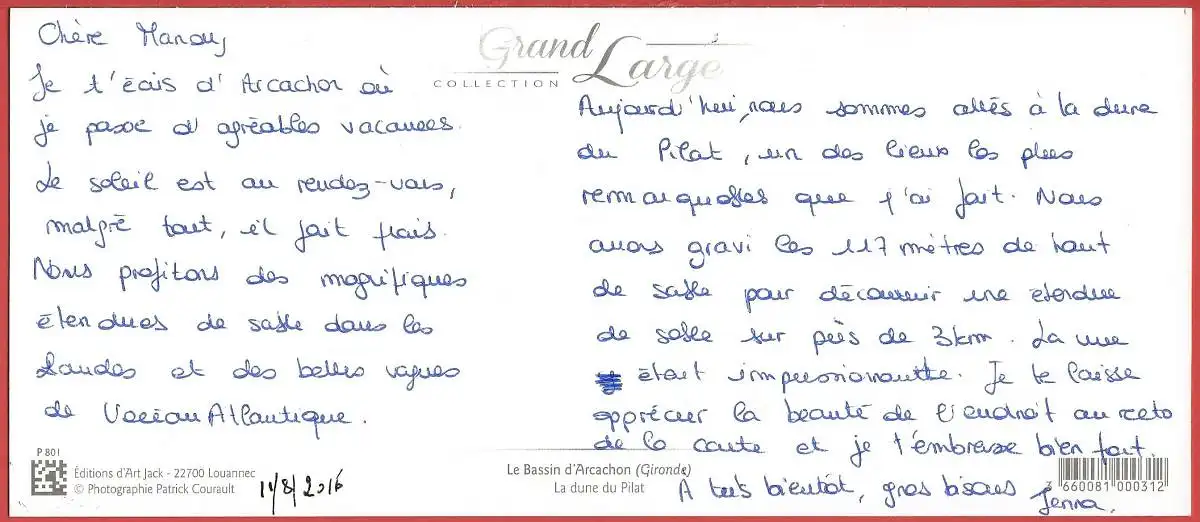 Chère Manou,
Je t'écris d'Arcachon où
je passe d'agréables vacances.
Le soleil est au rendez-vous,
malgré tout, il fait frais.
Nous profitons des magnifiques
étendues de sable dans les
Landes et des belles vagues
de l'océan Atlantique.
Grand Large
COLLECTION
Aujourd'hui, nous sommes allés à la dune
du Pilat, un des lieux les plus
remarquables que j'ai fait. Nous
avons gravi les 117 mètres de haut
de sable pour découvrir une étendue
de sable sur près de 3km. La vue
était impressionnante. Je te laisse
apprécier la beauté de l'endroit au recto
de la carte et je t'embrasse bien fort.
A très bientôt, gros bisous Jenna.
P 801
Éditions d'Art Jack - 22700 Louannec
© Photographie Patrick Courault
11/8/2016
Le Bassin d'Arcachon (Gironde)
La dune du Pilat
3 660081 000312